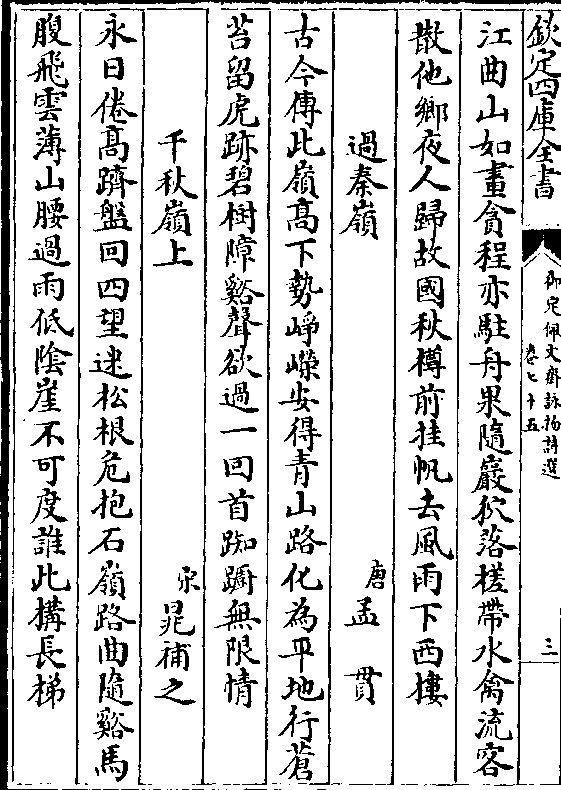 欽定四庫全書
御定佩文齋詠物詩選
卷七十五
三
江曲山如畫貪程亦駐舟果隨巖狖落槎帶水禽流客
散他鄉夜人歸故國秋樽前挂帆去風雨下西樓
過秦嶺
唐孟貫
古今傳此嶺高下勢崢嶸安得青山路化為平地行蒼
苔留虎跡碧樹障谿聲欲過一回首踟躕無限情
千秋嶺上
宋晁補之
永日倦高躋盤回四望迷松根危抱石嶺路曲隨谿馬
腹飛雲薄山腰過雨低陰崖不可度誰此構長梯